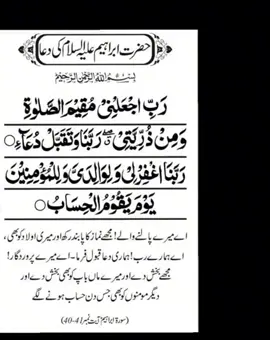 حضرت ابراہیم علیہ السلام کی دعا
بِسْمِ اللّٰهِ الرَّحْمٰنِ الرَّحِيْمِ
رَبِّ اجْعَلْنِيْ مُقِيْمَ الصَّلٰوةِ
وَمِنْ ذُرِّيَّتِيْ رَبَّنَا وَتَقَبَّلْ دُعَآءِ ○
رَبَّنَا اغْفِرْلِيْ وَلِوَالِدَيَّ وَلِلْمُؤْمِنِيْنَ
يَوْمَ يَقُوْمُ الْحِسَابُ ○
اے میرے پالنے والے! مجھے نماز کا پابند رکھ اور میری اولاد کو بھی،
اے ہمارے رب! ہماری دعا قبول فرما۔ اے میرے پروردگار!
مجھے بخش دے اور میرے ماں باپ کو بھی بخش دے اور
دیگر مومنوں کو بھی جس دن حساب ہونے لگے
(سورۃ ابراہیم آیت نمبر 41-40)